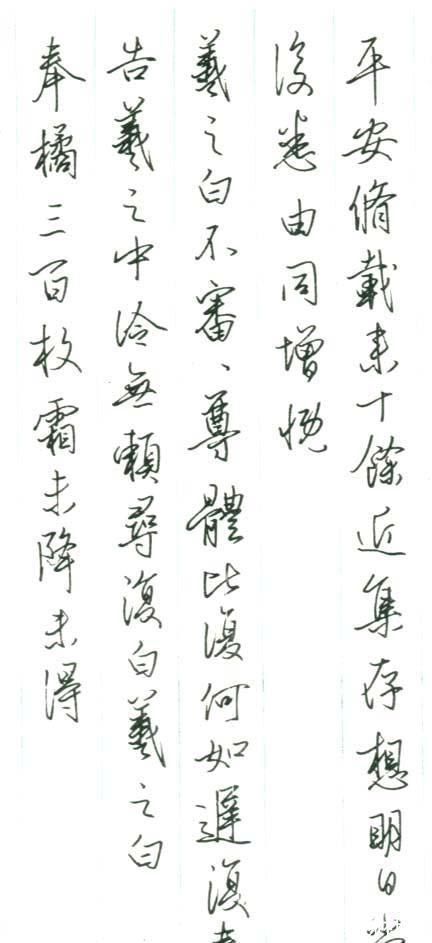 平安脩載来十餘近集存想明日當
復悉由同增慨
羲之白不審、尊體比復何如遲復奉
告羲之中冷無賴尋復白羲之白
奉橘三百枚霜未降未得